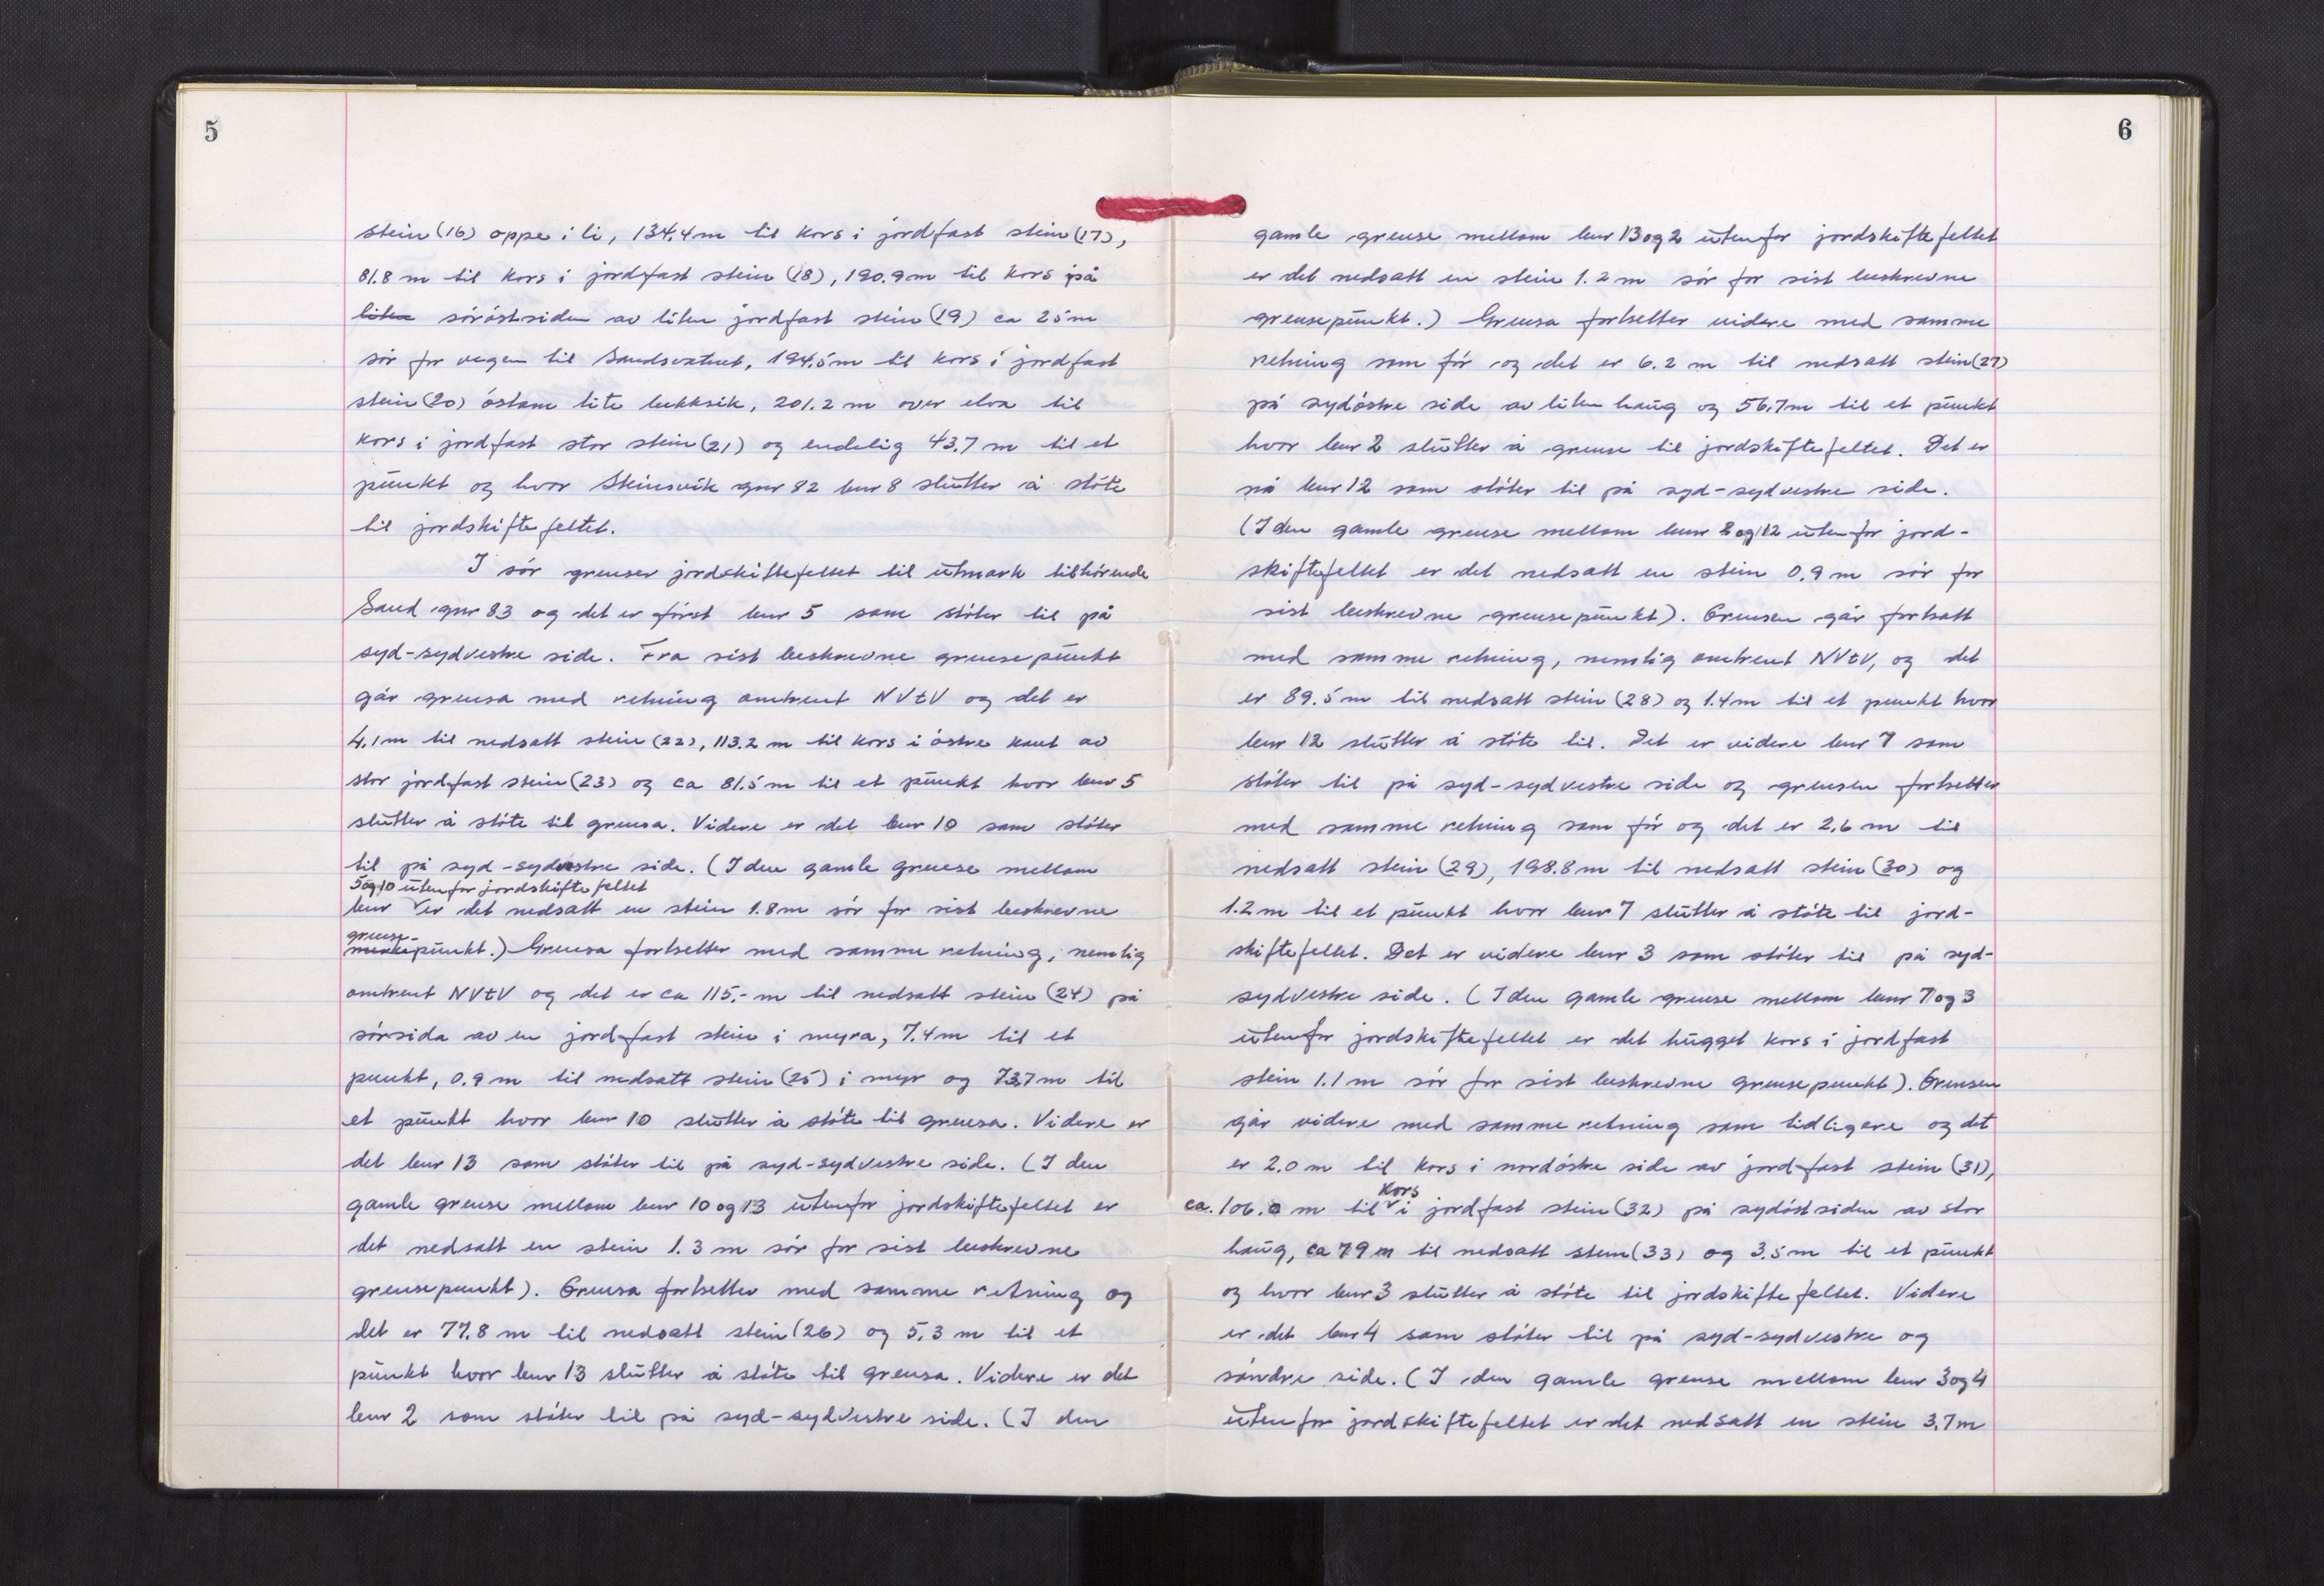 5
stein (16) oppe i li, 134.4 m til kors i jordfast stein (17),
81.8 m til kors i jordfast stein (18), 190.9 m til kors på
liten söröstsiden av liten jordfast stein (19) ca 25 m
sör for vegen til Sandsvatnet, 194.5 m til kors i jordfast
stein (20) östom lite bekksik, 201.2 m over elva til
kors i jordfast stor stein (21) og endelig 43.7 m til et
punkt og hvor Steinsvik gnr 82 bnr 8 slutter å støte
til jordskiftefeltet.
I sör grenser jordskiftefeltet til utmark tilhörende
Sand gnr 83 og det er först bnr 5 som stöter til på
syd-sydvestre side. Fra sist beskrevne grensepunkt
går grensa med retning omtrent NVtV og det er
4.1 m til nedsatt stein (22), 113.2 m til kors i östre kant av
stor jordfast stein (23) og ca 81.5 m til et punkt hvor bnr 5
slutter å stöte til grensa. Videre er det bnr 10 som stöter
til på syd-sydvestre side. (I den gamle grense mellom
5 og 10 utenfor jordskiftefeltet
bnr er det nedsatt en stein 1.8 m sör for sist beskrevne
grense-
merkepunkt.) Grensa fortsetter med samme retning, nemlig
omtrent NVtV og det er ca 115,- m til nedsatt stein (24) på
sörsida av en jordfast stein i myra, 7.4 m til et
punkt, 0.9 m til nedsatt stein (25) i myr og 73.7 m til
et punkt hvor bnr 10 slutter å stöte til grensa. Videre er
det bnr 13 som stöter til på syd-sydvestre side. (I den
gamle grense mellom bnr 10 og 13 utenfor jordskiftefeltet er
det nedsatt en stein 1.3 m sör for sist beskrevne
grensepunkt). Grensa fortsetter med samme retning og
det er 77.8 m til nedsatt stein (26) og 5.3 m til et
punkt hvor bnr 13 slutter å stöte til grensa. Videre er det
bnr 2 som stöter til på syd-sydvestre side. (I den
6
gamle grense mellom bnr 13 og 2 utenfor jordskiftefeltet
er det nedsatt en stein 1.2 m sör for sist beskrevne
grensepunkt.) Grensa fortsetter videre med samme
retning som för og det er 6.2 m til nedsatt stein (27)
på sydöstre side av liten haug og 56.7 m til et punkt
hvor bnr 2 slutter å grense til jordskiftefeltet. Det er
nå bnr 12 som stöter til på syd-sydvestre side.
(I den gamle grense mellom bnr 2 og 12 utenfor jord-
skiftefeltet er det nedsatt en stein 0.9 m sör for
sist beskrevne grensepunkt). Grensen går fortsatt
med samme retning, nemlig omtrent NVtV, og det
er 89.5 m til nedsatt stein (28) og 1.4 m til et punkt hvor
bnr 12 slutter å stöte til. Det er videre bnr 7 som
stöter til på syd-sydvestre side og grensen fortsetter
med samme retning som för og det er 2.6 m til
nedsatt stein (29), 198.8 m til nedsatt stein (30) og
1.2 m til et punkt hvor bnr 7 slutter å stöte til jord-
skiftefeltet. Det er videre bnr 3 som stöter til på syd-
sydvestre side. (I den gamle grense mellom bnr 7 og 3
utenfor jordskiftefeltet er det hugget kors i jordfast
stein 1.1 m sör for sist beskrevne grensepunkt). Grensen
går videre med samme retning som tidligere og det
er 2.0 m til kors i nordöstre side av jordfast stein (31),
kors
ca. 106.0 m til i jordfast stein (32) på sydöstsiden av stor
haug, ca 79 m til nedsatt stein (33) og 3.5 m til et punkt
og hvor bnr 3 slutter å stöte til jordskiftefeltet. Videre
er det bnr 4 som stöter til på syd-sydvestre og
söndre side. (I den gamle grense mellom bnr 3 og 4
utenfor jordskiftefeltet er det nedsatt en stein 3.7 m